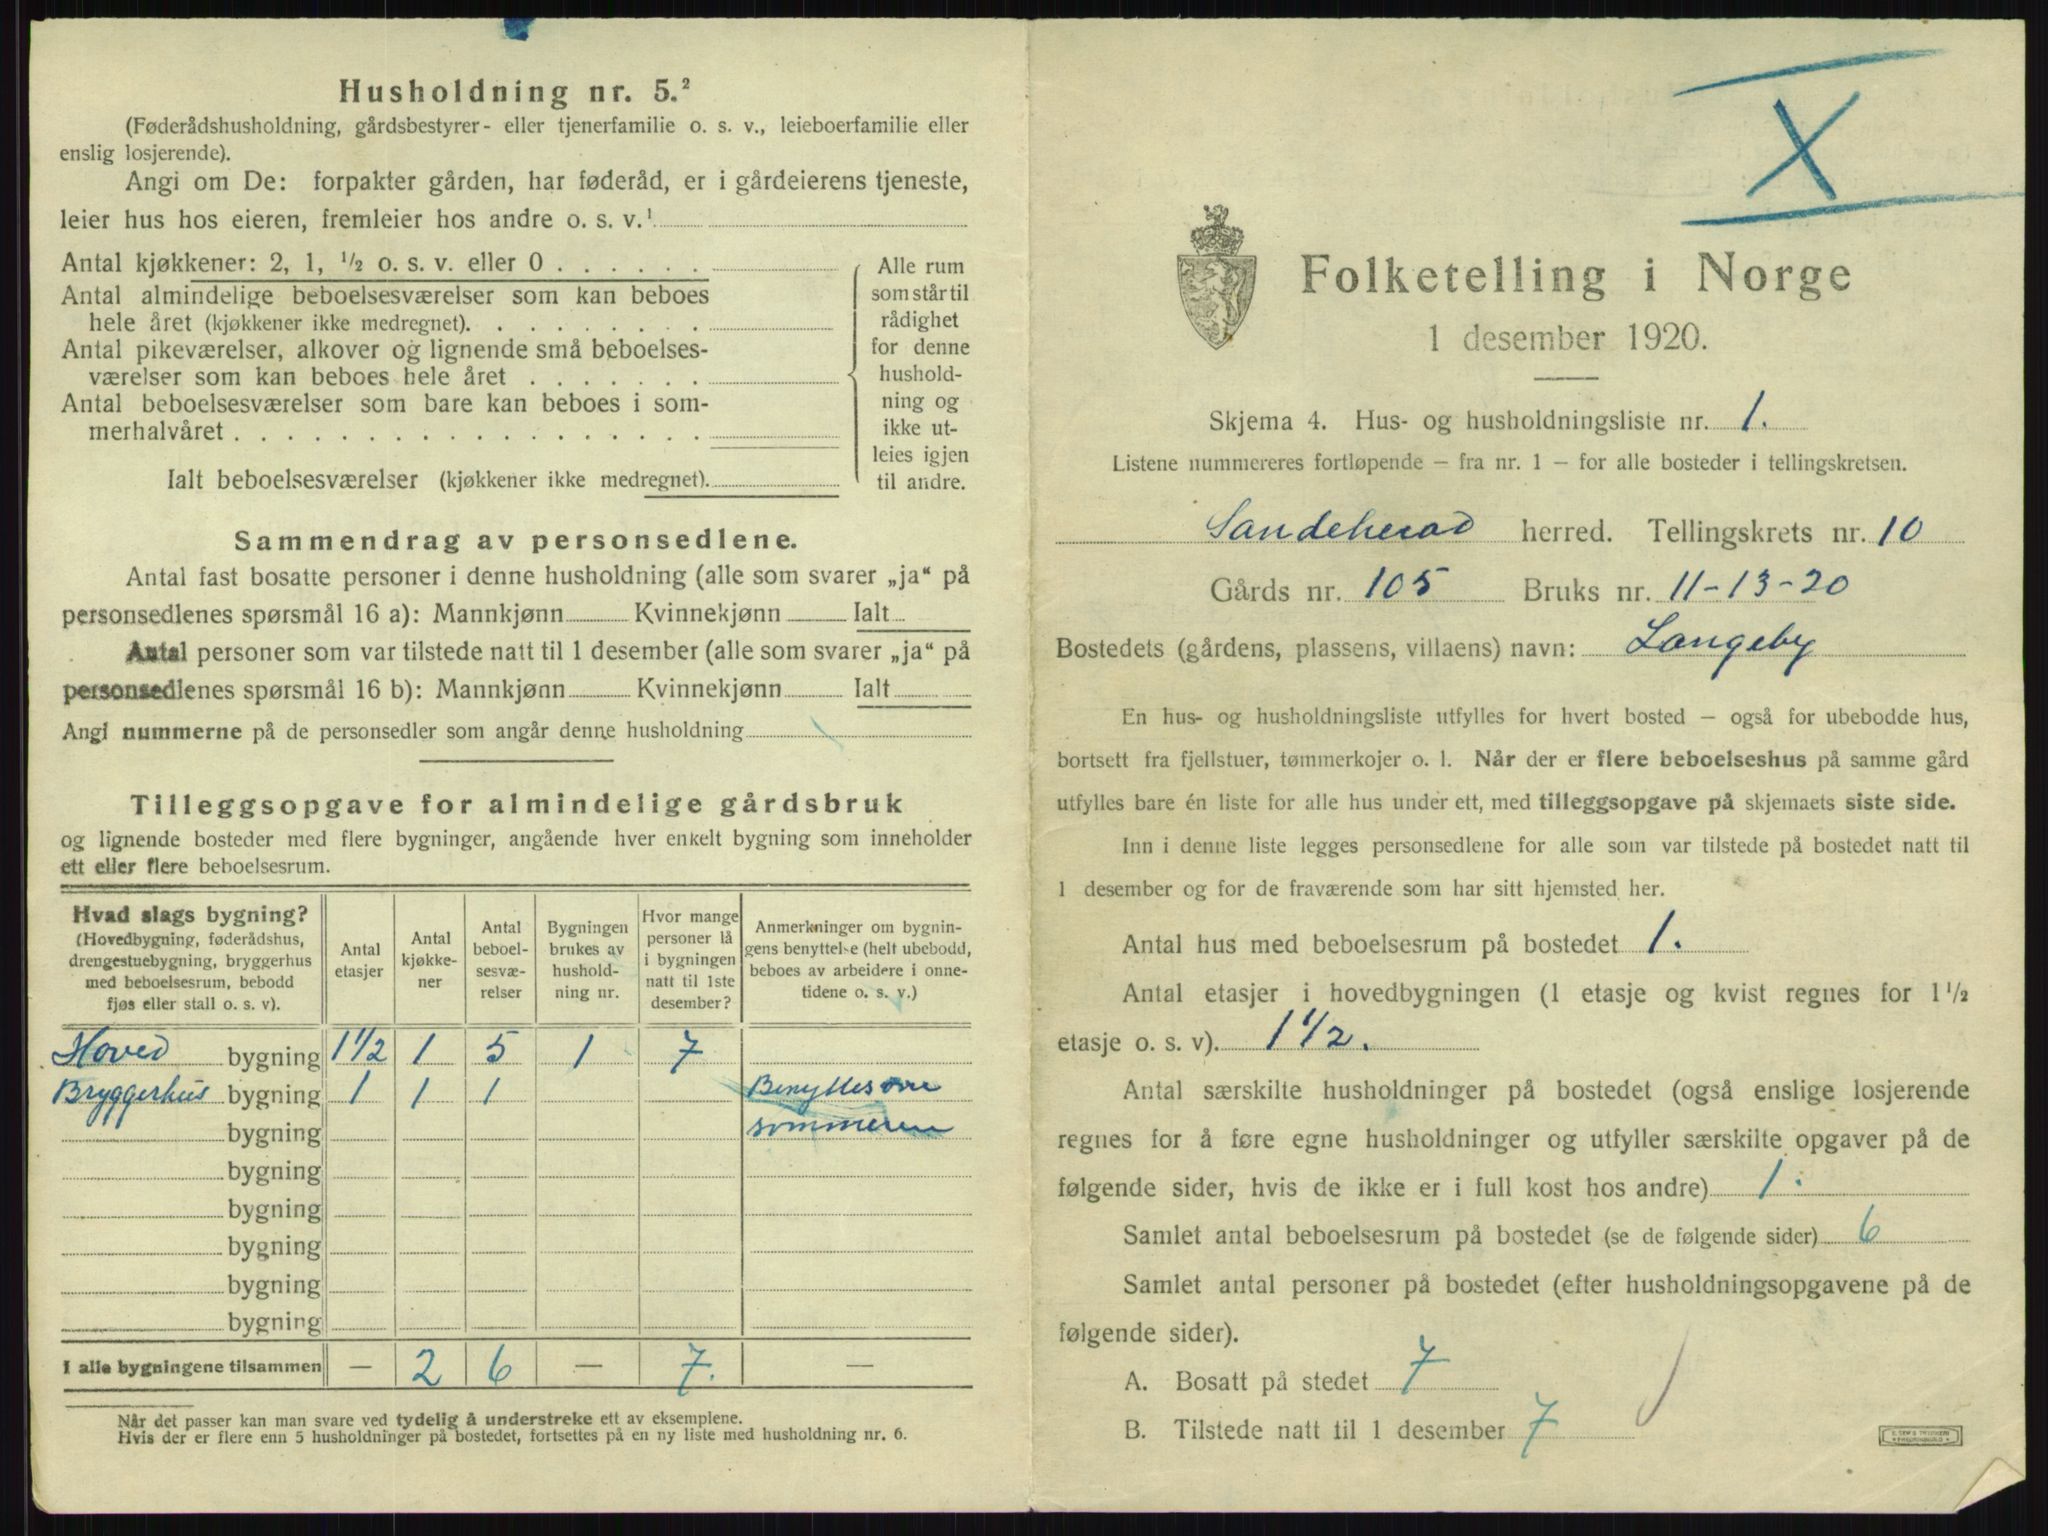 Husholdning nr. 5.²
(Føderådshusholdning, gårdsbestyrer- eller tjenerfamilie o. s. v., leieboerfamilie eller
enslig losjerende).
Angi om De: forpakter gården, har føderåd, er i gårdeierens tjeneste,
leier hus hos eieren, fremleier hos andre o. s. v.¹
Antal kjøkkener: 2, 1, ½ o. s. v. eller 0
Antal almindelige beboelsesværelser som kan beboes
hele året (kjøkkener ikke medregnet).
Antal pikeværelser, alkover og lignende små beboelses-
værelser som kan beboes hele året
Antal beboelsesværelser som bare kan beboes i som-
merhalvåret
Ialt beboelsesværelser (kjøkkener ikke medregnet).
Alle rum
som står til
rådighet
for denne
hushold-
ning og
ikke ut-
leies igjen
til andre.
Sammendrag av personsedlene.
Antal fast bosatte personer i denne husholdning (alle som svarer „ja“ på
personsedlenes spørsmål 16 a): Mannkjønn Kvinnekjønn Ialt
Antal personer som var tilstede natt til 1 desember (alle som svarer „ja“ på
personsedlenes spørsmål 16 b): Mannkjønn Kvinnekjønn Ialt
Angi nummerne på de personsedler som angår denne husholdning
Tilleggsopgave for almindelige gårdsbruk
og lignende bosteder med flere bygninger, angående hver enkelt bygning som inneholder
ett eller flere beboelsesrum.
Hvad slags bygning?
(Hovedbygning, føderådshus,
drengestuebygning, bryggerhus
med beboelsesrum, bebodd
fjøs eller stall o. s. v).
Antal
etasjer
Antal
kjøkke-
ner
Antal
beboel-
sesvæ-
relser
Bygningen
brukes av
hushold-
ning nr.
Hvor mange
personer lå
i bygningen
natt til 1ste
desember?
Anmerkninger om bygnin-
gens benyttelse (helt ubebodd,
beboes av arbeidere i onne-
tidene o. s. v.)
Hoved bygning 1½ 1 5 1 7
Bryggerhus bygning 1 1 1 Benyttes om
bygning sommeren
bygning
bygning
bygning
bygning
bygning
I alle bygningene tilsammen — 2 6 — 7. —
Når det passer kan man svare ved tydelig å understreke ett av eksemplene.
Hvis der er flere enn 5 husholdninger på bostedet, fortsettes på en ny liste med husholdning nr. 6.
X
Folketelling i Norge
1 desember 1920.
Skjema 4. Hus- og husholdningsliste nr. 1.
Listene nummereres fortløpende – fra nr. 1 – for alle bosteder i tellingskretsen.
Sandeherad herred. Tellingskrets nr. 10
Gårds nr. 105 Bruks nr. 11-13-20
Bostedets (gårdens, plassens, villaens) navn: Langeby
En hus- og husholdningsliste utfylles for hvert bosted – også for ubebodde hus,
bortsett fra fjellstuer, tømmerkojer o. l. Når der er flere beboelseshus på samme gård
utfylles bare én liste for alle hus under ett, med tilleggsopgave på skjemaets siste side.
Inn i denne liste legges personsedlene for alle som var tilstede på bostedet natt til
1 desember og for de fraværende som har sitt hjemsted her.
Antal hus med beboelsesrum på bostedet 1.
Antal etasjer i hovedbygningen (1 etasje og kvist regnes for 1½
etasje o. s. v). 1½.
Antal særskilte husholdninger på bostedet (også enslige losjerende
regnes for å føre egne husholdninger og utfyller særskilte opgaver på de
følgende sider, hvis de ikke er i full kost hos andre) 1.
Samlet antal beboelsesrum på bostedet (se de følgende sider) 6
Samlet antal personer på bostedet (efter husholdningsopgavene på de
følgende sider).
A. Bosatt på stedet 7
B. Tilstede natt til 1 desember 7